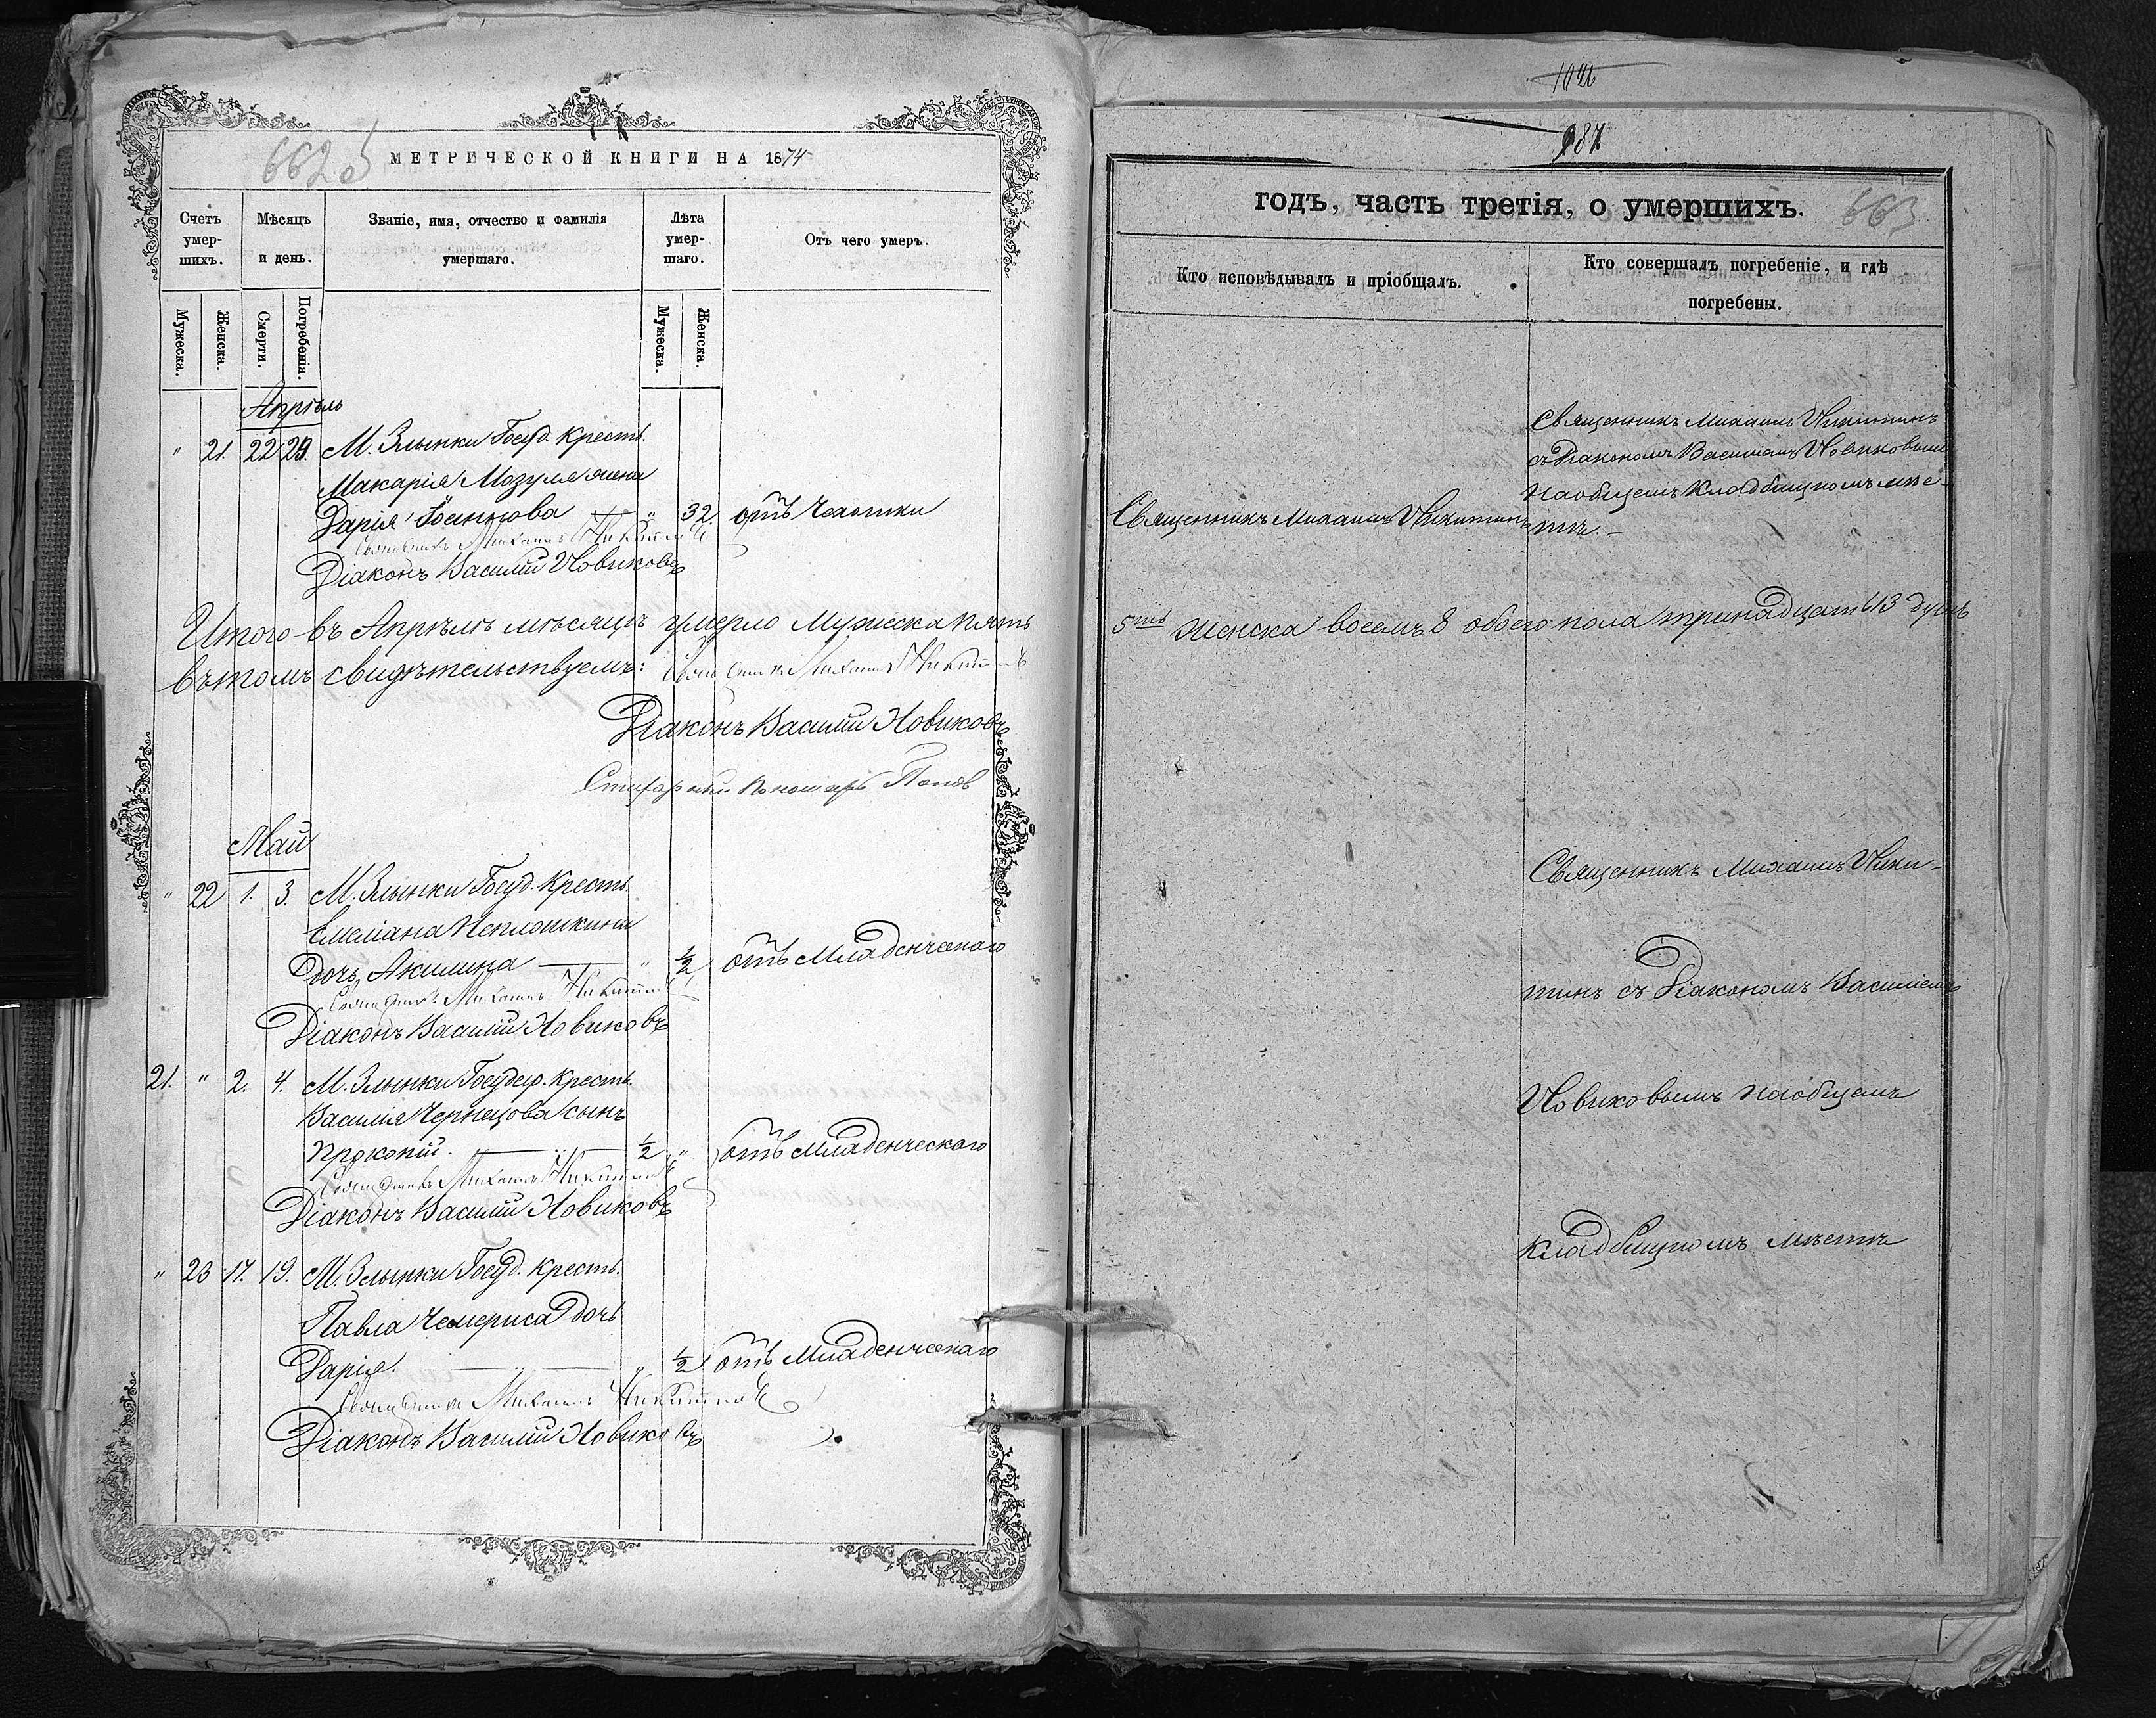 662 об
МЕТРИЧЕСКОЙ КНИГИ НА 1874
Счетъ умер-шихъ.
Мѣсяцъ и день.
Званіе, имя, отчество и фамилія умершаго.
Лѣта умер-шаго.
Отъ чего умеръ.
Мужеска.
Женска.
Смерти.
Погребенія.
Мужеска.
Женска.
Апрѣль
" 21. 22 24. М. Злынки Госуд. Кресть.
Макарія Мозуля жена
Дарія — " 32. отъ Чахотки
Священникъ Михаилъ Никитинъ
Діаконъ Василій Новиковъ
Итого въ Апрѣлѣ мѣсяцѣ умерло Мужеска пять
въ томъ свидѣтельствуемъ: Священникъ Михаилъ Никитинъ
Діаконъ Василій Новиковъ
Стихарный Пономарь Попов
Май
" 22 1. 3. М. Злынки Госуд. Кресть.
Емеліана Неплошкина
дочь Акилина — " ½ отъ Младенческаго
Священникъ Михаилъ Никитинъ
Діаконъ Василій Новиковъ
21. " 2. 4. М. Злынки Государ. Кресть.
Василія Чернецова сынъ
Прокопій. — ½ " отъ Младенческаго
Священникъ Михаилъ Никитинъ
Діаконъ Василій Новиковъ
" 23 17. 19. М. Злынки Госуд. Кресть.
Павла Чемериса дочь
Дарія. — " ½ отъ Младенческаго
Священникъ Михаилъ Никитинъ
Діаконъ Василій Новиковъ
187
годъ, часть третія, о умершихъ. 663
Кто исповѣдывалъ и пріобщалъ.
Кто совершалъ погребеніе, и гдѣ
погребены.
Священникъ Михаилъ Никитинъ
съ Діакономъ Василіемъ Новиковымъ
на общемъ кладбищномъ мѣс-
Священникъ Михаилъ Никитинъ
тѣ. –
5ть Женска восемь 8 обоего пола тринадцать 13 душъ
Священникъ Михаилъ Ники-
тинъ съ Діакономъ Василіемъ
Новиковымъ на общемъ
кладбищномъ мѣстѣ